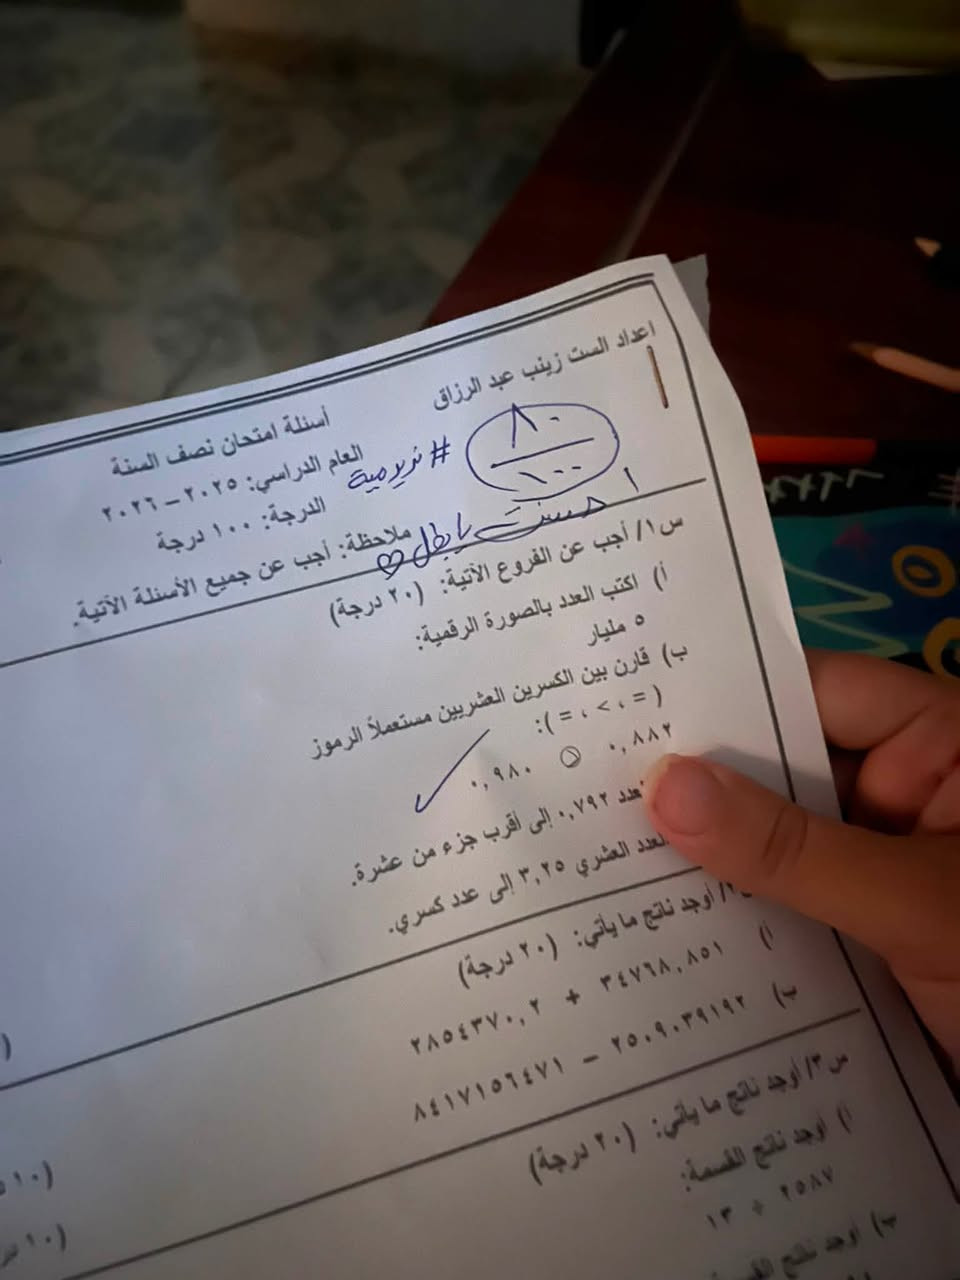 اعداد الست زينب عبد الرزاق
٨٠
١٠٠
أسئلة امتحان نصف السنة
العام الدراسي: ٢٠٢٥ – ٢٠٢٦
الدرجة: ١٠٠ درجة
#نريد مية
احسنت يا بطل ♡
ملاحظة: أجب عن جميع الأسئلة الآتية.
س١/ أجب عن الفروع الآتية: (٢٠ درجة)
أ) اكتب العدد بالصورة الرقمية:
٥ مليار
ب) قارن بين الكسرين العشريين مستعملاً الرموز
( = ، > ، = ):
٠,٨٨٢ ○ ٠,٩٨٠
٠,٧٩٢ إلى أقرب جزء من عشرة.
العدد العشري ٣,٢٥ إلى عدد كسري.
/ أوجد ناتج ما يأتي: (٢٠ درجة)
أ)
٣٤٧٦٨,٨٥١ + ٢٨٥٤٣٧٠,٢
ب)
٢٥٠٩٠٣٩١٩٢ – ٨٤١٧١٥٦٤٧١
س٣/ أوجد ناتج ما يأتي: (٢٠ درجة)
أ) أوجد ناتج القسمة:
٢٥٨٧ ÷ ١٣
ب) أوجد ناتج